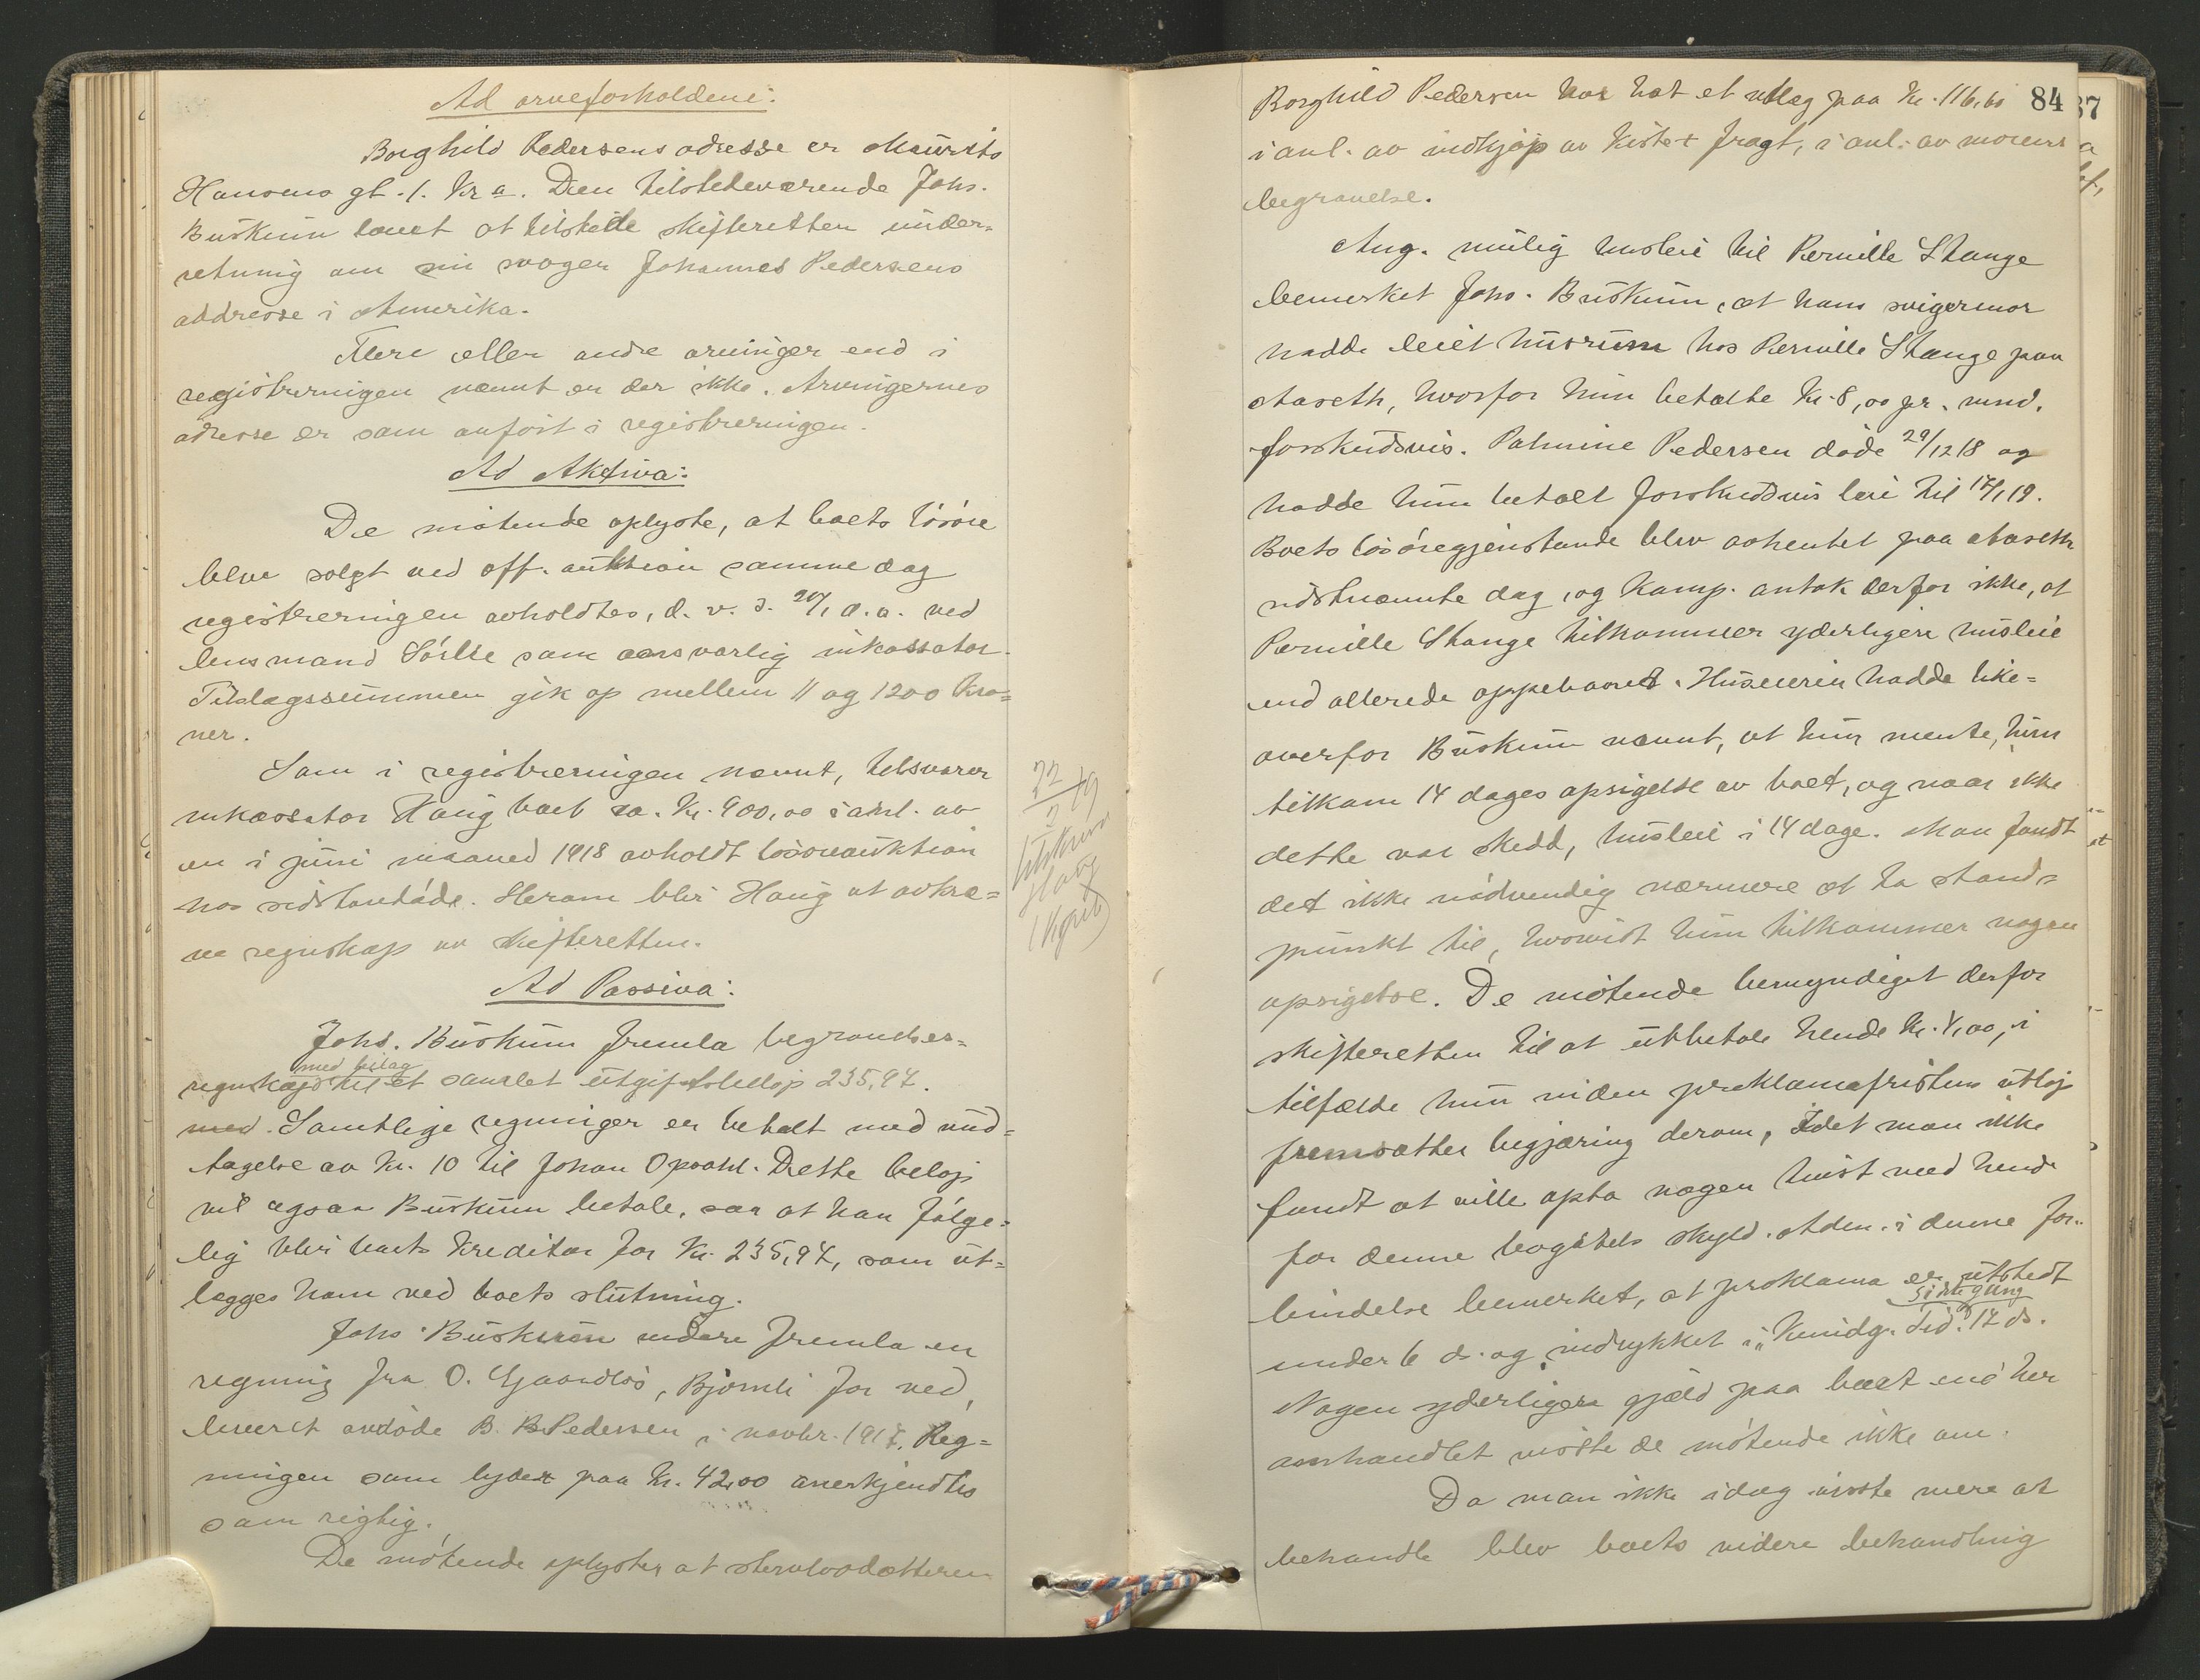 Ad arveforholdene:
Borghild Pedersens adresse er Mauritz
Hansens gt. 1. Kra. Den tilstedeværende Johs.
Buskum lovet at tilstille skifteretten under-
retning om sin svoger Johannes Pedersens
addresse i Amerika.
Flere eller andre arvinger end i
registreringen nævnt er der ikke. Arvingernes
adresse er som anført i registreringen.
Ad Aktiva:
De møtende oplyste, at boets løsøre
blev solgt ved off. auktion samme dag
registreringen avholdtes, d. v. s. 20/1 d.a. ved
lensmand Sørlie som ansvarlig inkassator.
Tilslagssummen gik op mellem 11 og 1200 kro=
ner.
Som i registreringen nævnt, tilsvarer
inkassator Haug boet ca. Kr. 900,00 i anl. av
en i juni maaned 1918 avholdt løsøreauktion
hos sidstavdøde. Herom blir Haug at avkræ=
ve regnskap av skifteretten.
22/2 19
tilskrevet
Haug
(Kopi)
Ad Passiva:
Johs. Buskum fremla begravelses=
med bilag
regnskap til et samlet utgiftsbeløp 235,97.
med. Samtlige regninger er betalt med und=
tagelse av Kr. 10 til Johan Opsahl. Dette beløp
vil ogsaa Buskum betale, saa at han følge=
lig blir boets kreditor for Kr. 235,97, som ut=
lægges ham ved boets slutning.
Johs. Buskum videre fremla en
regning fra O. Gaardløs, Bjørnli for ved,
levert avdøde B. B. Pedersen i novbr. 1917. Reg=
ningen som lyder paa Kr. 42,00 anerkjendtes
som rigtig.
De møtende oplyste, at stervbodatteren
84
Borghild Pedersen har hat et utlæg paa Kr. 116,60
i anl. av indkjøp av kiste + fragt, i anl. av morens
begravelse.
Ang. mulig husleie til Pernille Stange
bemerket Johs. Buskum, at hans svigermor
hadde leiet husrum hos Pernille Stange paa
Aaseth, hvorfor hun betalte Kr. 8,00 pr. mnd.
forskudsvis. Palmine Pedersen døde 29/12 18 og
hadde hun betalt forskudsvis leie til 17/1 19.
Boets løsøregjenstande blev avhentet paa Aaseth
sidstnævnte dag, og komp. antok derfor ikke, at
Pernille Stange tilkommer yderligere husleie
end allerede oppebaaret. Huseierin hadde like=
overfor Buskum nævnt, at hun mente, hun
tilkom 14 dages opsigelse av boet, og naar ikke
dette var skedd, husleie i 14 dage. Man fandt
det ikke nødvendig nærmere at ta stand=
punkt til, hvorvidt hun tilkommer nogen
opsigelse. De møtende bemyndiget derfor
skifteretten til at utbetale hende Kr. 4,00, i
tilfælde hun inden proklamafristens utløp
fremsætter begjæring derom, idet man ikke
fandt at ville opta nogen tvist med hende
for denne bagatels skyld. Adm. i denne for=
bindelse bemerket, at proklama er utstedt
under 6 ds. og indrykket i „Kundg. Tid." 12 ds.
Nogen yderligere gjæld paa boet end her
avhandlet visste de møtende ikke om.
Da man ikke idag visste mere at
behandle blev boets videre behandling